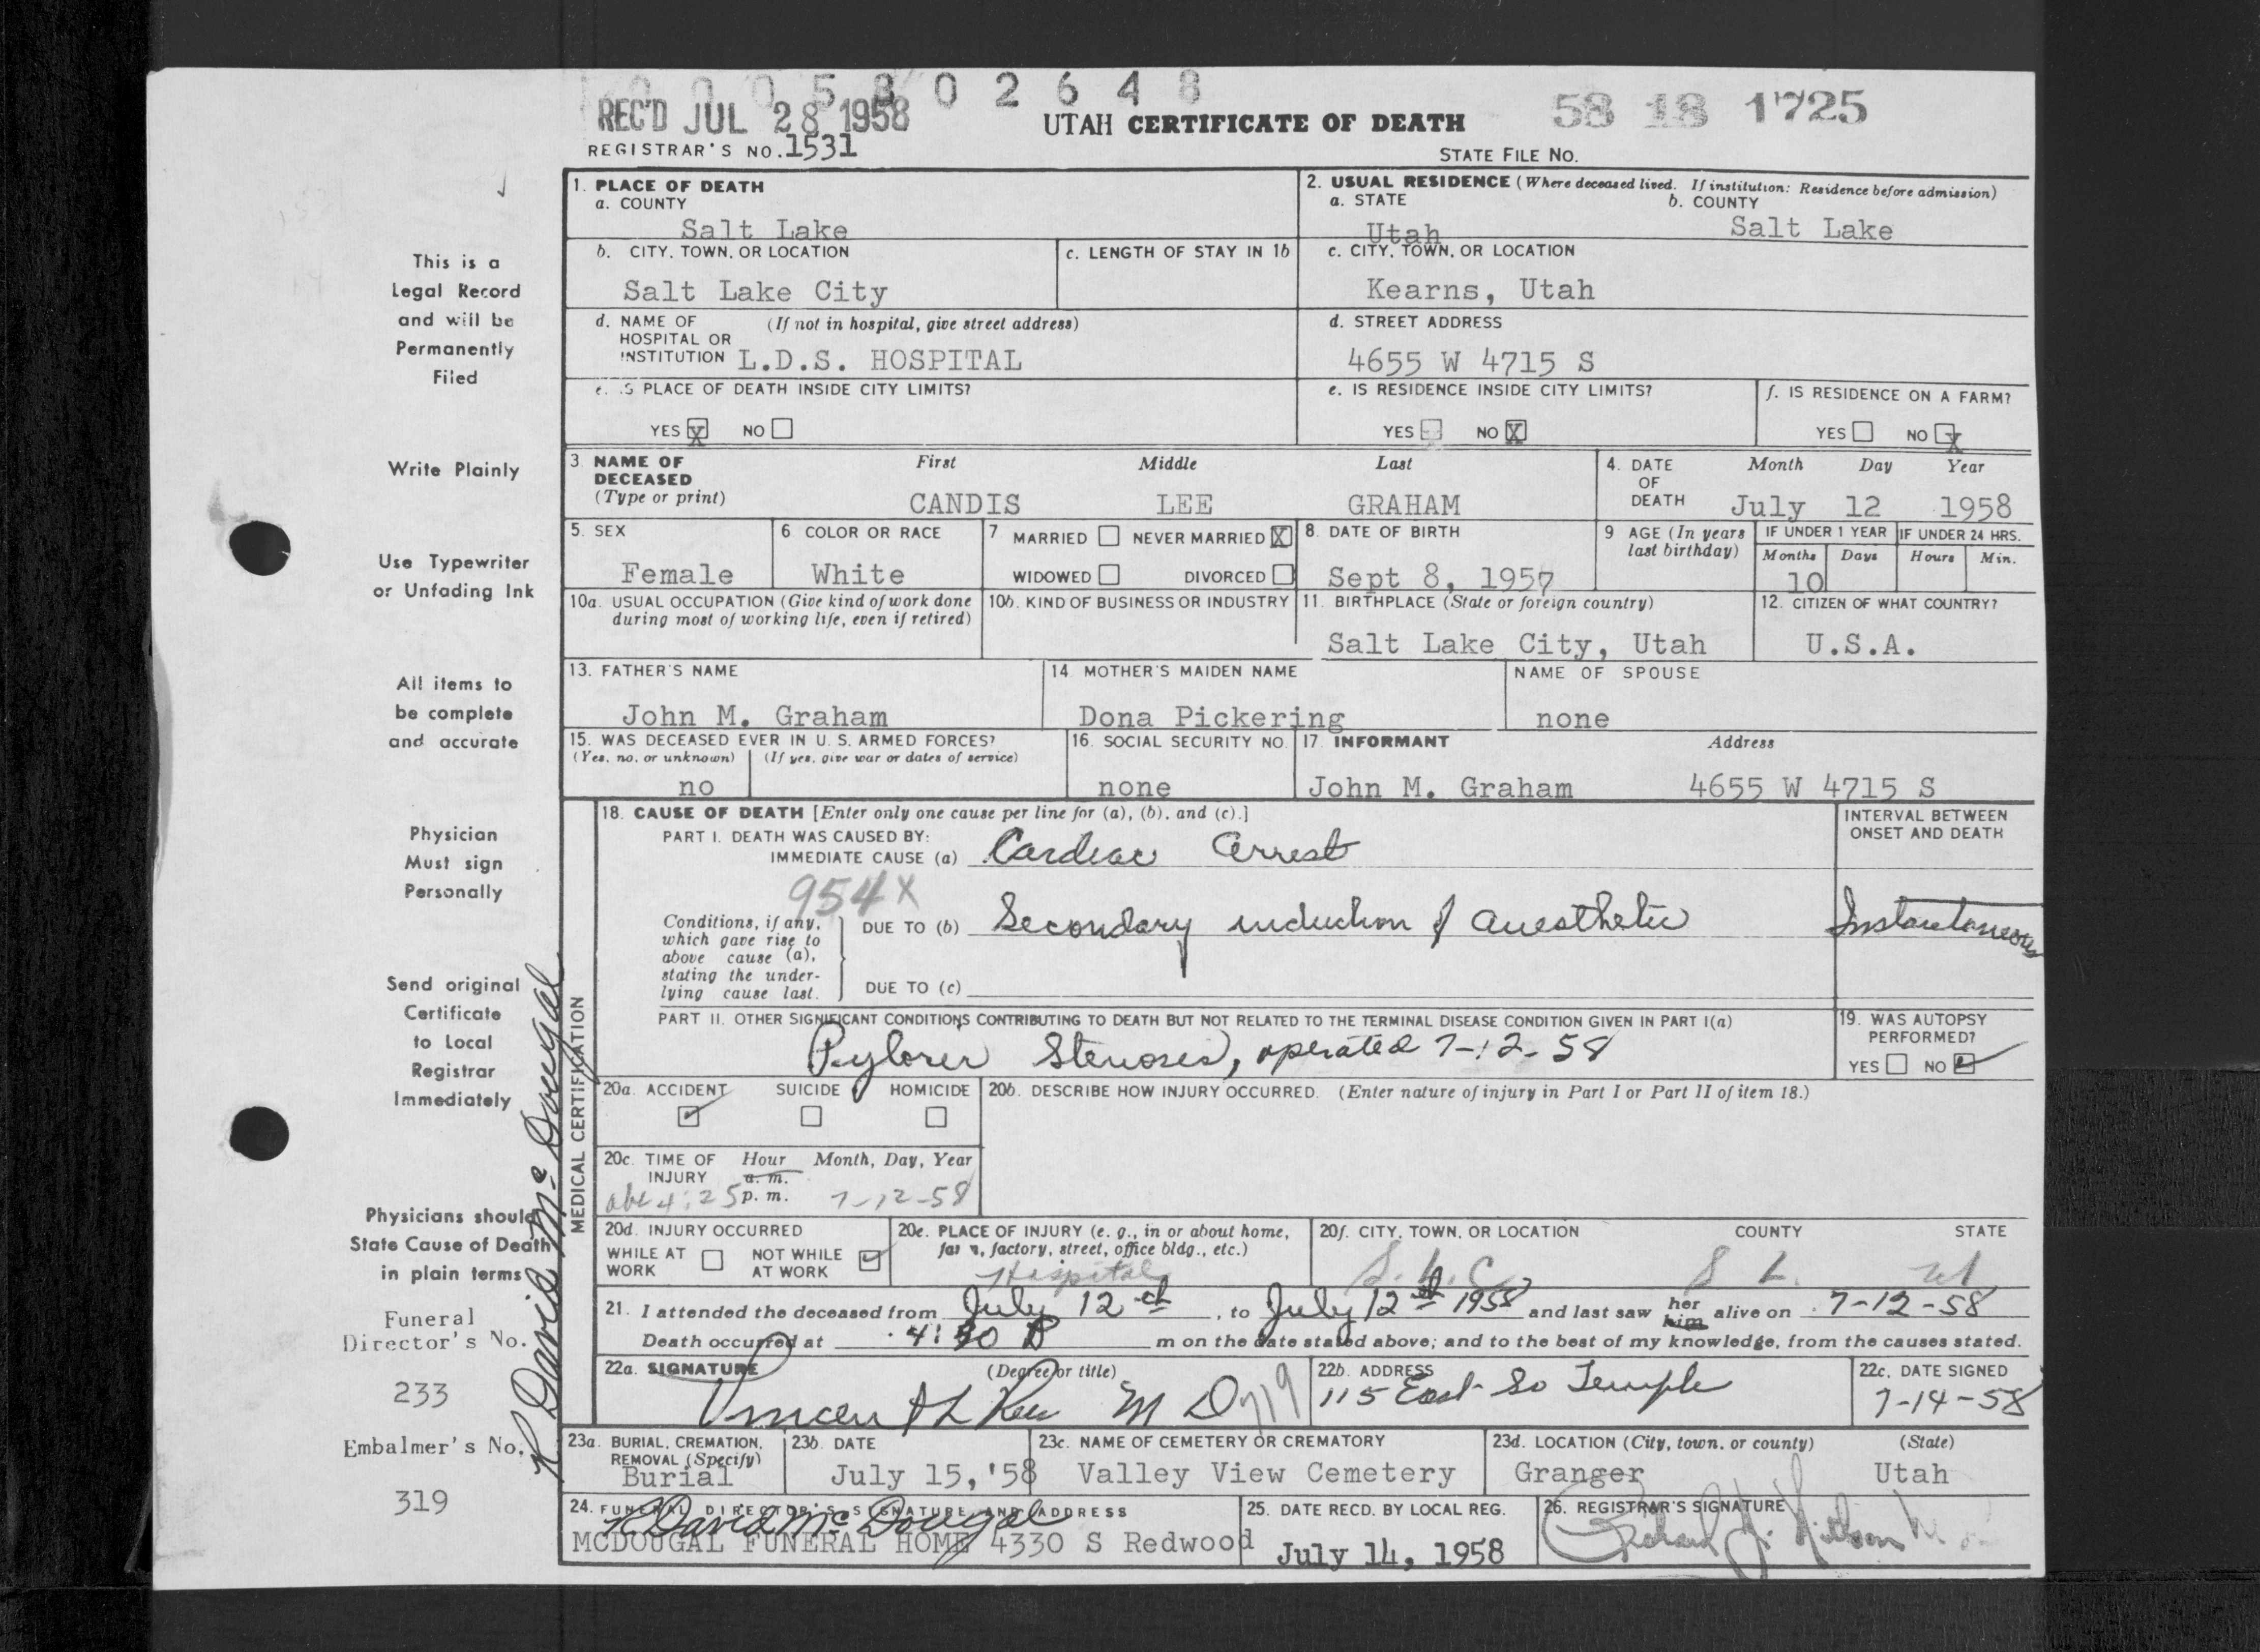 0 0 0 5 8 0 2 6 4 8
REC'D JUL 28 1958
UTAH CERTIFICATE OF DEATH
58 18 1725
REGISTRAR'S NO. 1531
STATE FILE NO.
This is a
Legal Record
and will be
Permanently
Filed
Write Plainly
Use Typewriter
or Unfading Ink
All items to
be complete
and accurate
Physician
Must sign
Personally
Send original
Certificate
to Local
Registrar
Immediately
Physicians should
State Cause of Death
in plain terms
Funeral
Director's No.
233
Embalmer's No.
319
R David McDougal
1. PLACE OF DEATH
a. COUNTY
Salt Lake
2. USUAL RESIDENCE (Where deceased lived. If institution: Residence before admission)
a. STATE b. COUNTY
Utah Salt Lake
b. CITY, TOWN, OR LOCATION
Salt Lake City
c. LENGTH OF STAY IN 1b
c. CITY, TOWN, OR LOCATION
Kearns, Utah
d. NAME OF (If not in hospital, give street address)
HOSPITAL OR
INSTITUTION L.D.S. HOSPITAL
d. STREET ADDRESS
4655 W 4715 S
e. IS PLACE OF DEATH INSIDE CITY LIMITS?
YES X NO
e. IS RESIDENCE INSIDE CITY LIMITS?
YES NO X
f. IS RESIDENCE ON A FARM?
YES NO X
3. NAME OF DECEASED (Type or print)
First Middle Last
CANDIS LEE GRAHAM
4. DATE OF DEATH
Month Day Year
July 12 1958
5. SEX
Female
6 COLOR OR RACE
White
7 MARRIED NEVER MARRIED X
WIDOWED DIVORCED
8. DATE OF BIRTH
Sept 8, 1957
9 AGE (In years last birthday)
IF UNDER 1 YEAR IF UNDER 24 HRS.
Months Days Hours Min.
10
10a. USUAL OCCUPATION (Give kind of work done
during most of working life, even if retired)
10b. KIND OF BUSINESS OR INDUSTRY
11. BIRTHPLACE (State or foreign country)
Salt Lake City, Utah
12. CITIZEN OF WHAT COUNTRY?
U.S.A.
13. FATHER'S NAME
John M. Graham
14 MOTHER'S MAIDEN NAME
Dona Pickering
NAME OF SPOUSE
none
15. WAS DECEASED EVER IN U. S. ARMED FORCES?
(Yes, no, or unknown) (If yes, give war or dates of service)
no
16. SOCIAL SECURITY NO.
none
17. INFORMANT Address
John M. Graham 4655 W 4715 S
MEDICAL CERTIFICATION
18. CAUSE OF DEATH [Enter only one cause per line for (a), (b), and (c).]
PART I. DEATH WAS CAUSED BY:
IMMEDIATE CAUSE (a) Cardiac arrest
954 X
Conditions, if any,
which gave rise to
above cause (a),
stating the under-
lying cause last.
DUE TO (b) Secondary induction of anesthetic
DUE TO (c)
INTERVAL BETWEEN
ONSET AND DEATH
Instantaneous
PART II. OTHER SIGNIFICANT CONDITIONS CONTRIBUTING TO DEATH BUT NOT RELATED TO THE TERMINAL DISEASE CONDITION GIVEN IN PART I(a)
Pyloric Stenosis, operated 7-12-58
19. WAS AUTOPSY
PERFORMED?
YES NO
20a. ACCIDENT SUICIDE HOMICIDE
20b. DESCRIBE HOW INJURY OCCURRED. (Enter nature of injury in Part I or Part II of item 18.)
20c. TIME OF Hour Month, Day, Year
INJURY a. m.
4:25 p. m. 7-12-58
20d. INJURY OCCURRED
WHILE AT WORK NOT WHILE AT WORK
20e. PLACE OF INJURY (e. g., in or about home,
farm, factory, street, office bldg., etc.)
Hospital
20f. CITY, TOWN, OR LOCATION COUNTY STATE
S. L. C S L. Ut
21. I attended the deceased from July 12, to July 12 1958 and last saw her him alive on 7-12-58
Death occurred at 4:30 P m on the date stated above; and to the best of my knowledge, from the causes stated.
22a. SIGNATURE (Degree or title)
Vincent L Rees M D
22b. ADDRESS
115 East So Temple
22c. DATE SIGNED
7-14-58
23a. BURIAL, CREMATION,
REMOVAL (Specify)
Burial
23b. DATE
July 15, '58
23c. NAME OF CEMETERY OR CREMATORY
Valley View Cemetery
23d. LOCATION (City, town, or county) (State)
Granger Utah
24. FUNERAL DIRECTOR'S SIGNATURE AND ADDRESS
R David McDougal
MCDOUGAL FUNERAL HOME 4330 S Redwood
25. DATE RECD. BY LOCAL REG.
July 14, 1958
26. REGISTRAR'S SIGNATURE